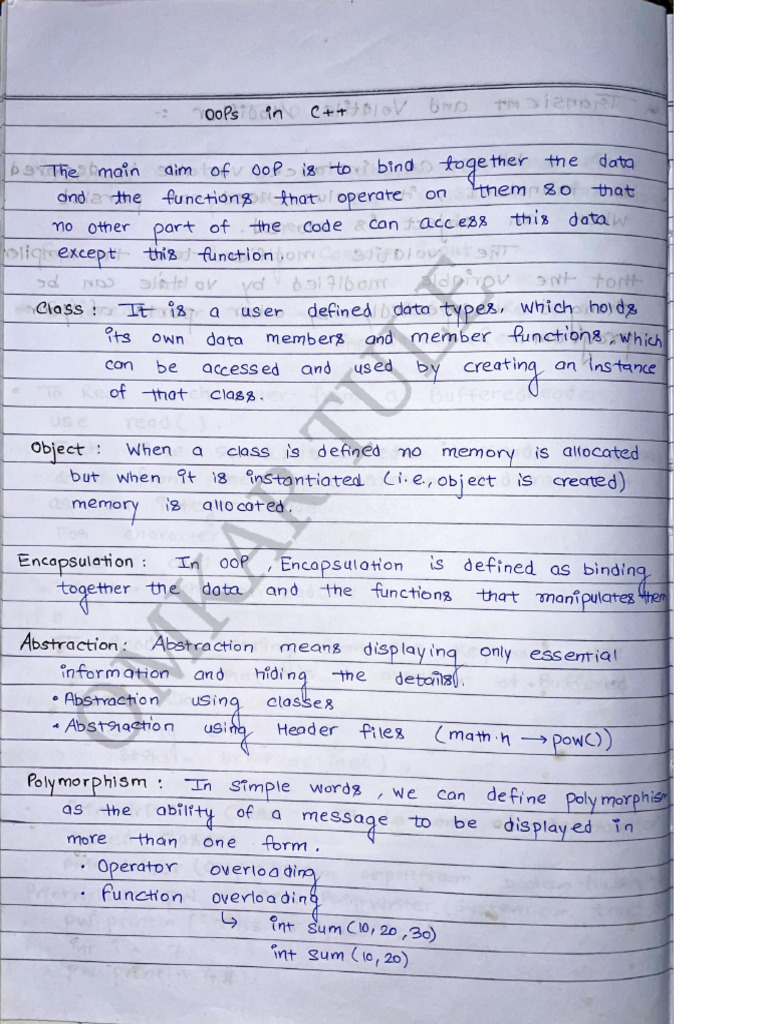 OOPs in C++
The main aim of OOP is to bind together the data
and the functions that operate on them so that
no other part of the code can access this data
except this function.
Class : It is a user defined data types, which holds
its own data members and member functions, which
can be accessed and used by creating an instance
of that class.
Object : When a class is defined no memory is allocated
but when it is instantiated (i.e., object is created)
memory is allocated.
Encapsulation : In OOP, Encapsulation is defined as binding
together the data and the functions that manipulates them
Abstraction : Abstraction means displaying only essential
information and hiding the details.
• Abstraction using classes
• Abstraction using Header files (math.h → pow())
Polymorphism : In simple words, we can define polymorphism
as the ability of a message to be displayed in
more than one form.
• Operator overloading
• Function overloading
↳ int sum(10, 20, 30)
int sum(10, 20)
OMKAR TULI